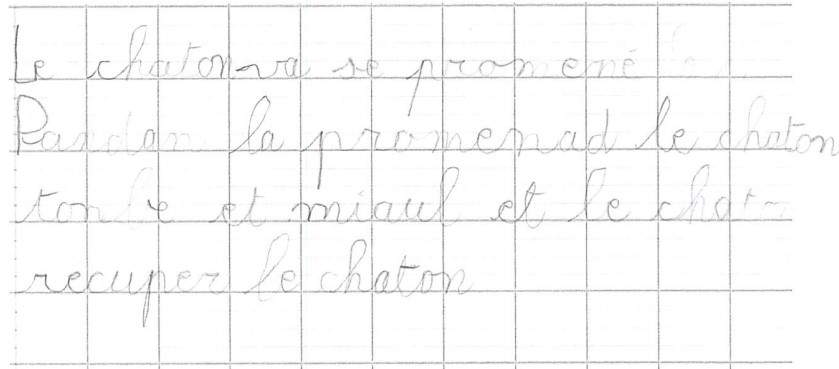 Le chaton va se promené
Pandan la promenad le chaton
tonbe et miaul et le chat
recuper le chaton